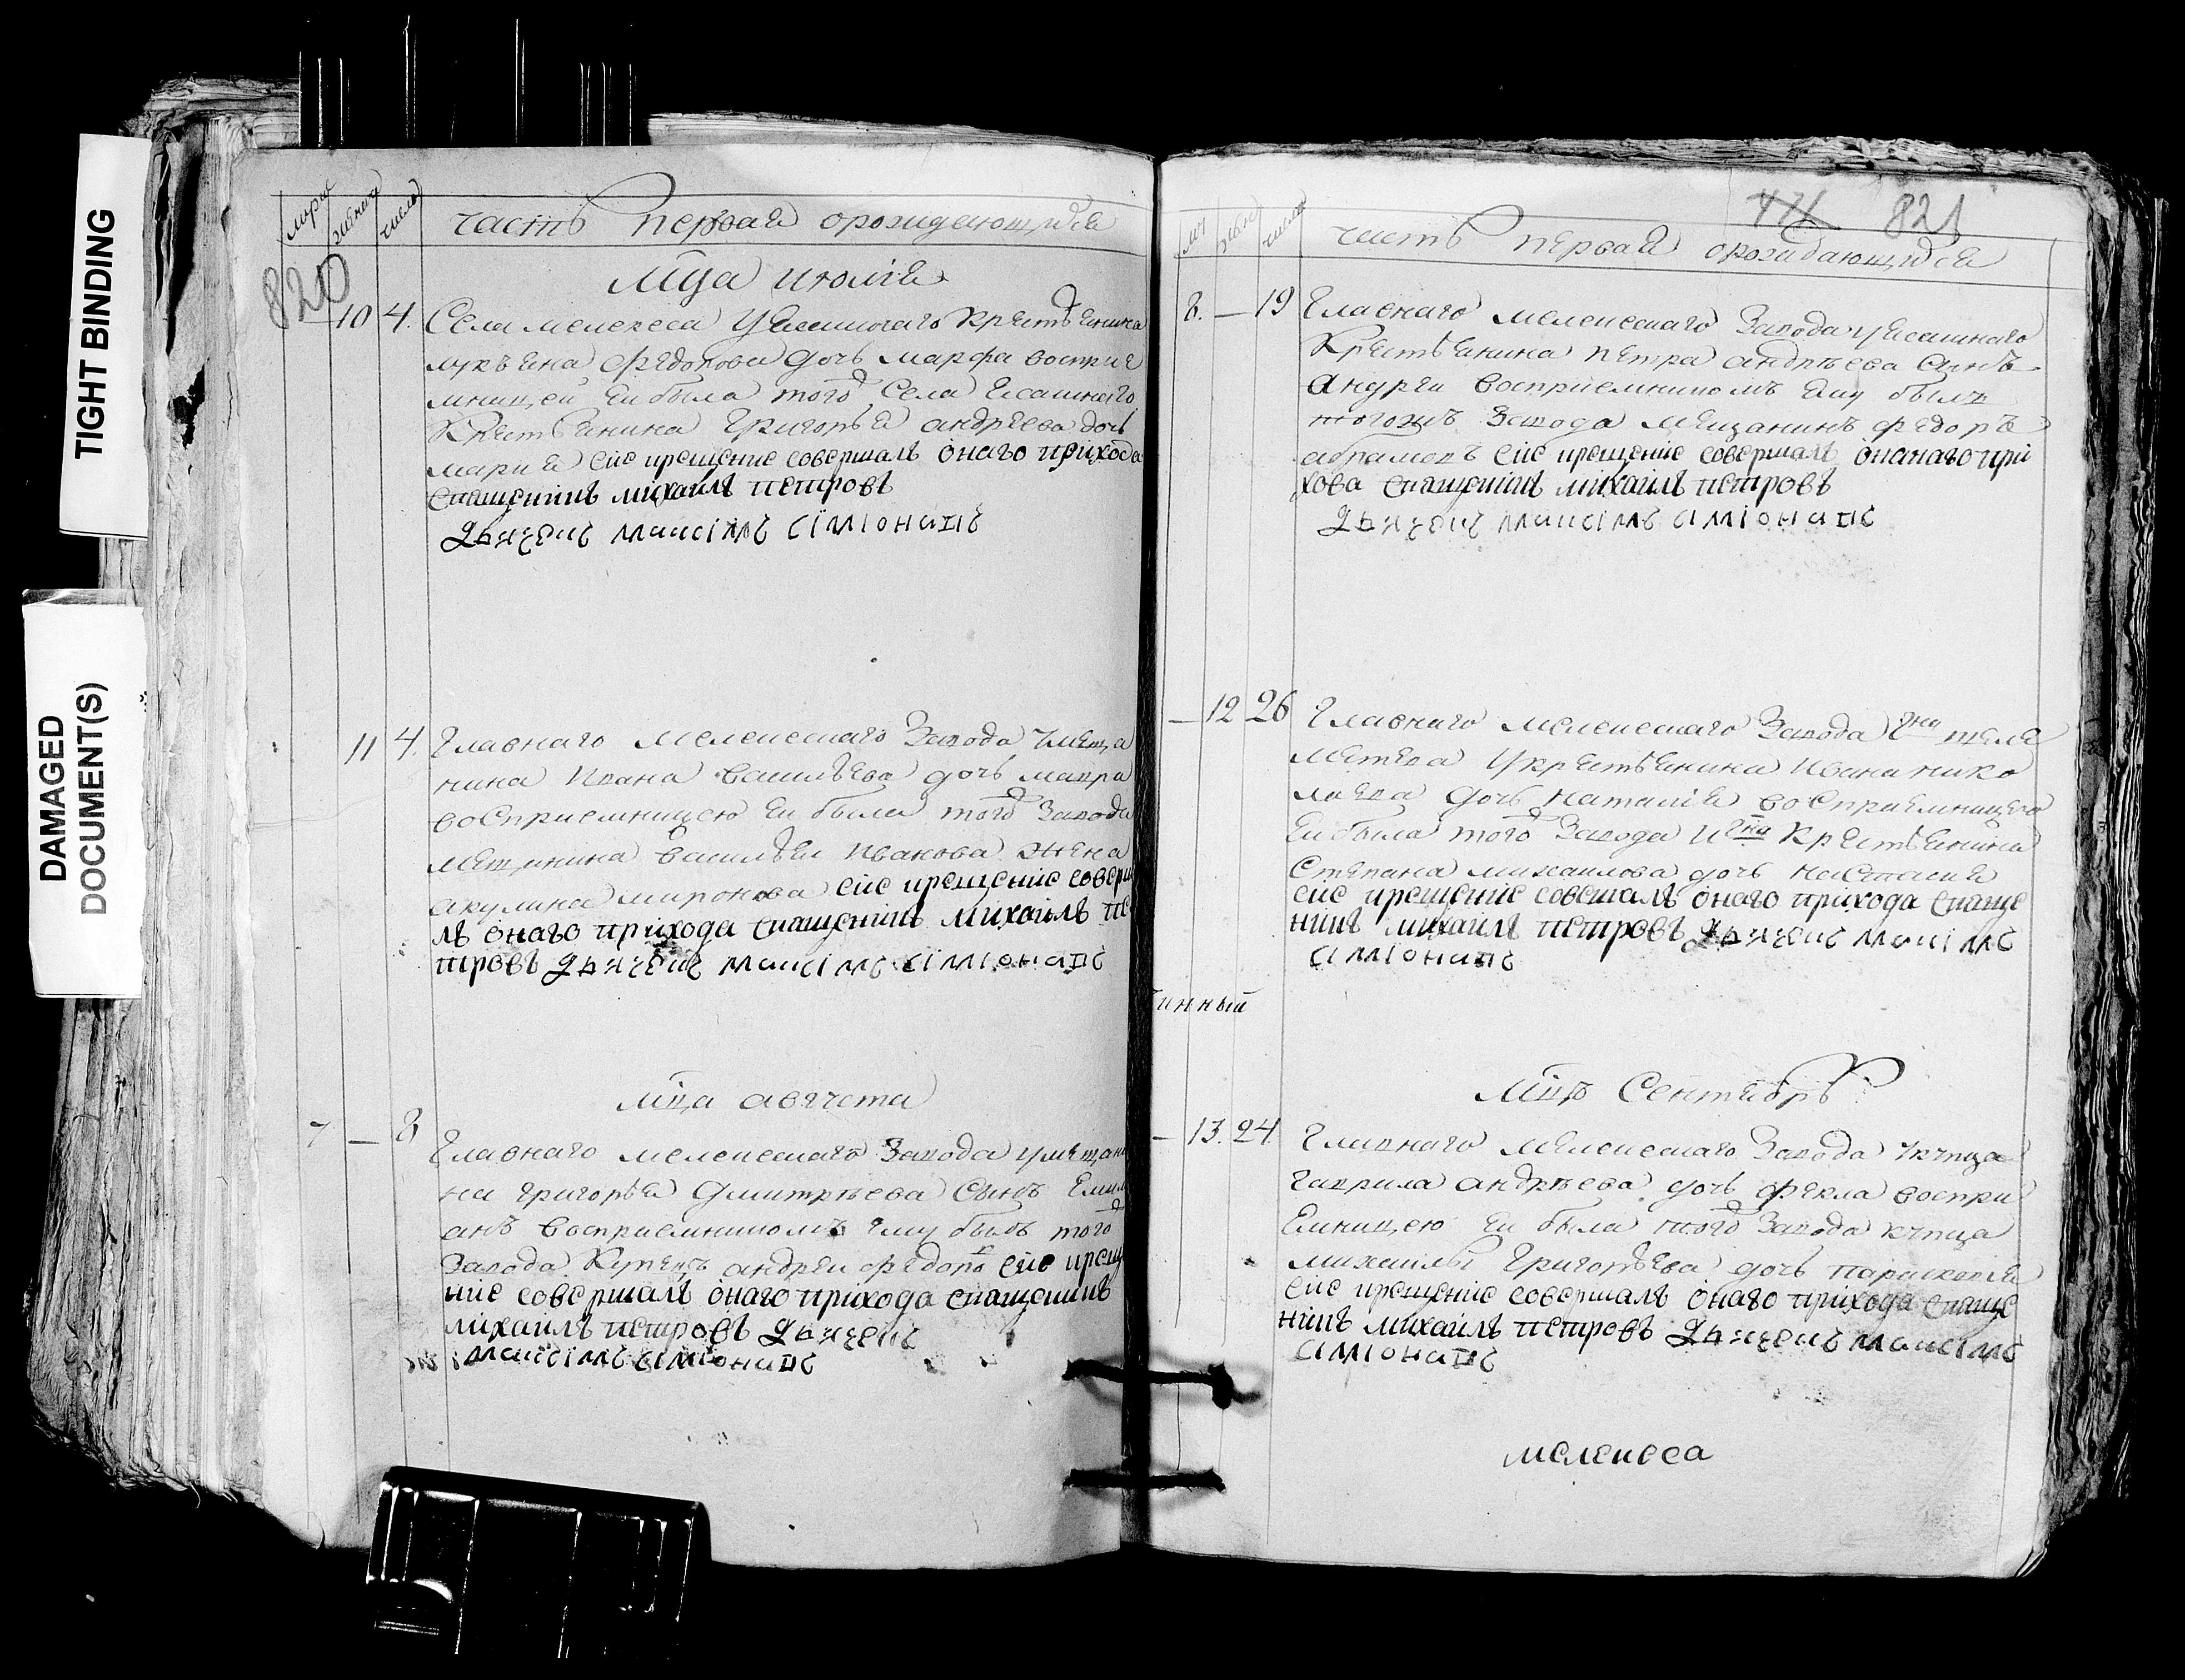 TIGHT BINDING
DAMAGED
DOCUMENT(S)
820
часть первая орождающихся
Мца июлiя
10 4. Села мелекеса уясашного крестьянина
лукьяна Федорова дочь марфа восприе
мницей ей была того Села ясашнаго
крестьянина григорья андреева дочь
мария сие крещение совершалъ онаго прихода
священникъ михаилъ петровъ
Дьячекъ максiмъ сiмiонавъ
11 4. Главнаго мелекескаго Завода умеща
нина Ивана васильева дочь мавра
восприемницею ей была того Завода
мещанина василья иванова жена
акулина миронова сие крещение соверша
лъ онаго прихода священникъ михаилъ пе
тровъ Дьячекъ максiмъ сiмiонавъ
мца августа
7 — 8 Главнаго мелекескаго Завода умещани
на григорья дмитриева сынъ Емили
анъ восприемникомъ ему былъ того
Завода Купецъ андреи федоро сие креще
ние совершалъ онаго прихода священникъ
михаилъ петровъ Дьячекъ
максiмъ сiмiонавъ
821
часть первая орождающихся
8. — 19 Главнаго мелекескаго Завода уясашнаго
крестьянина петра андреева сынъ
андреи восприемникомъ ему былъ
тогожъ Завода мещанинъ федоръ
абрамовъ сие крещение совершалъ онанаго при
хова священникъ михаилъ петровъ
Дьячекъ максiмъ сiмiонавъ
— 12 26 Главнаго мелекескаго Завода
укрестьянина Ивана нико
лаева дочь наталiя восприемницею
ей была того Завода крестьянина
степана михаилова дочь настасия
сие крещение совешалъ онаго прихода свяще
нникъ михаилъ петровъ Дьячекъ максiмъ
сiмiонавъ
инный
Мцъ Сентябрь
— 13. 24 Главнаго мелекескаго Завода укупца
гаврила андреева дочь фекла воспри
емницею ей была того Завода купца
михаилы григорьева дочь параскопия
сие крещение совершалъ онаго прихода свяще
нникъ михаилъ петровъ Дьячекъ максiмъ
сiмiонавъ
мелекеса